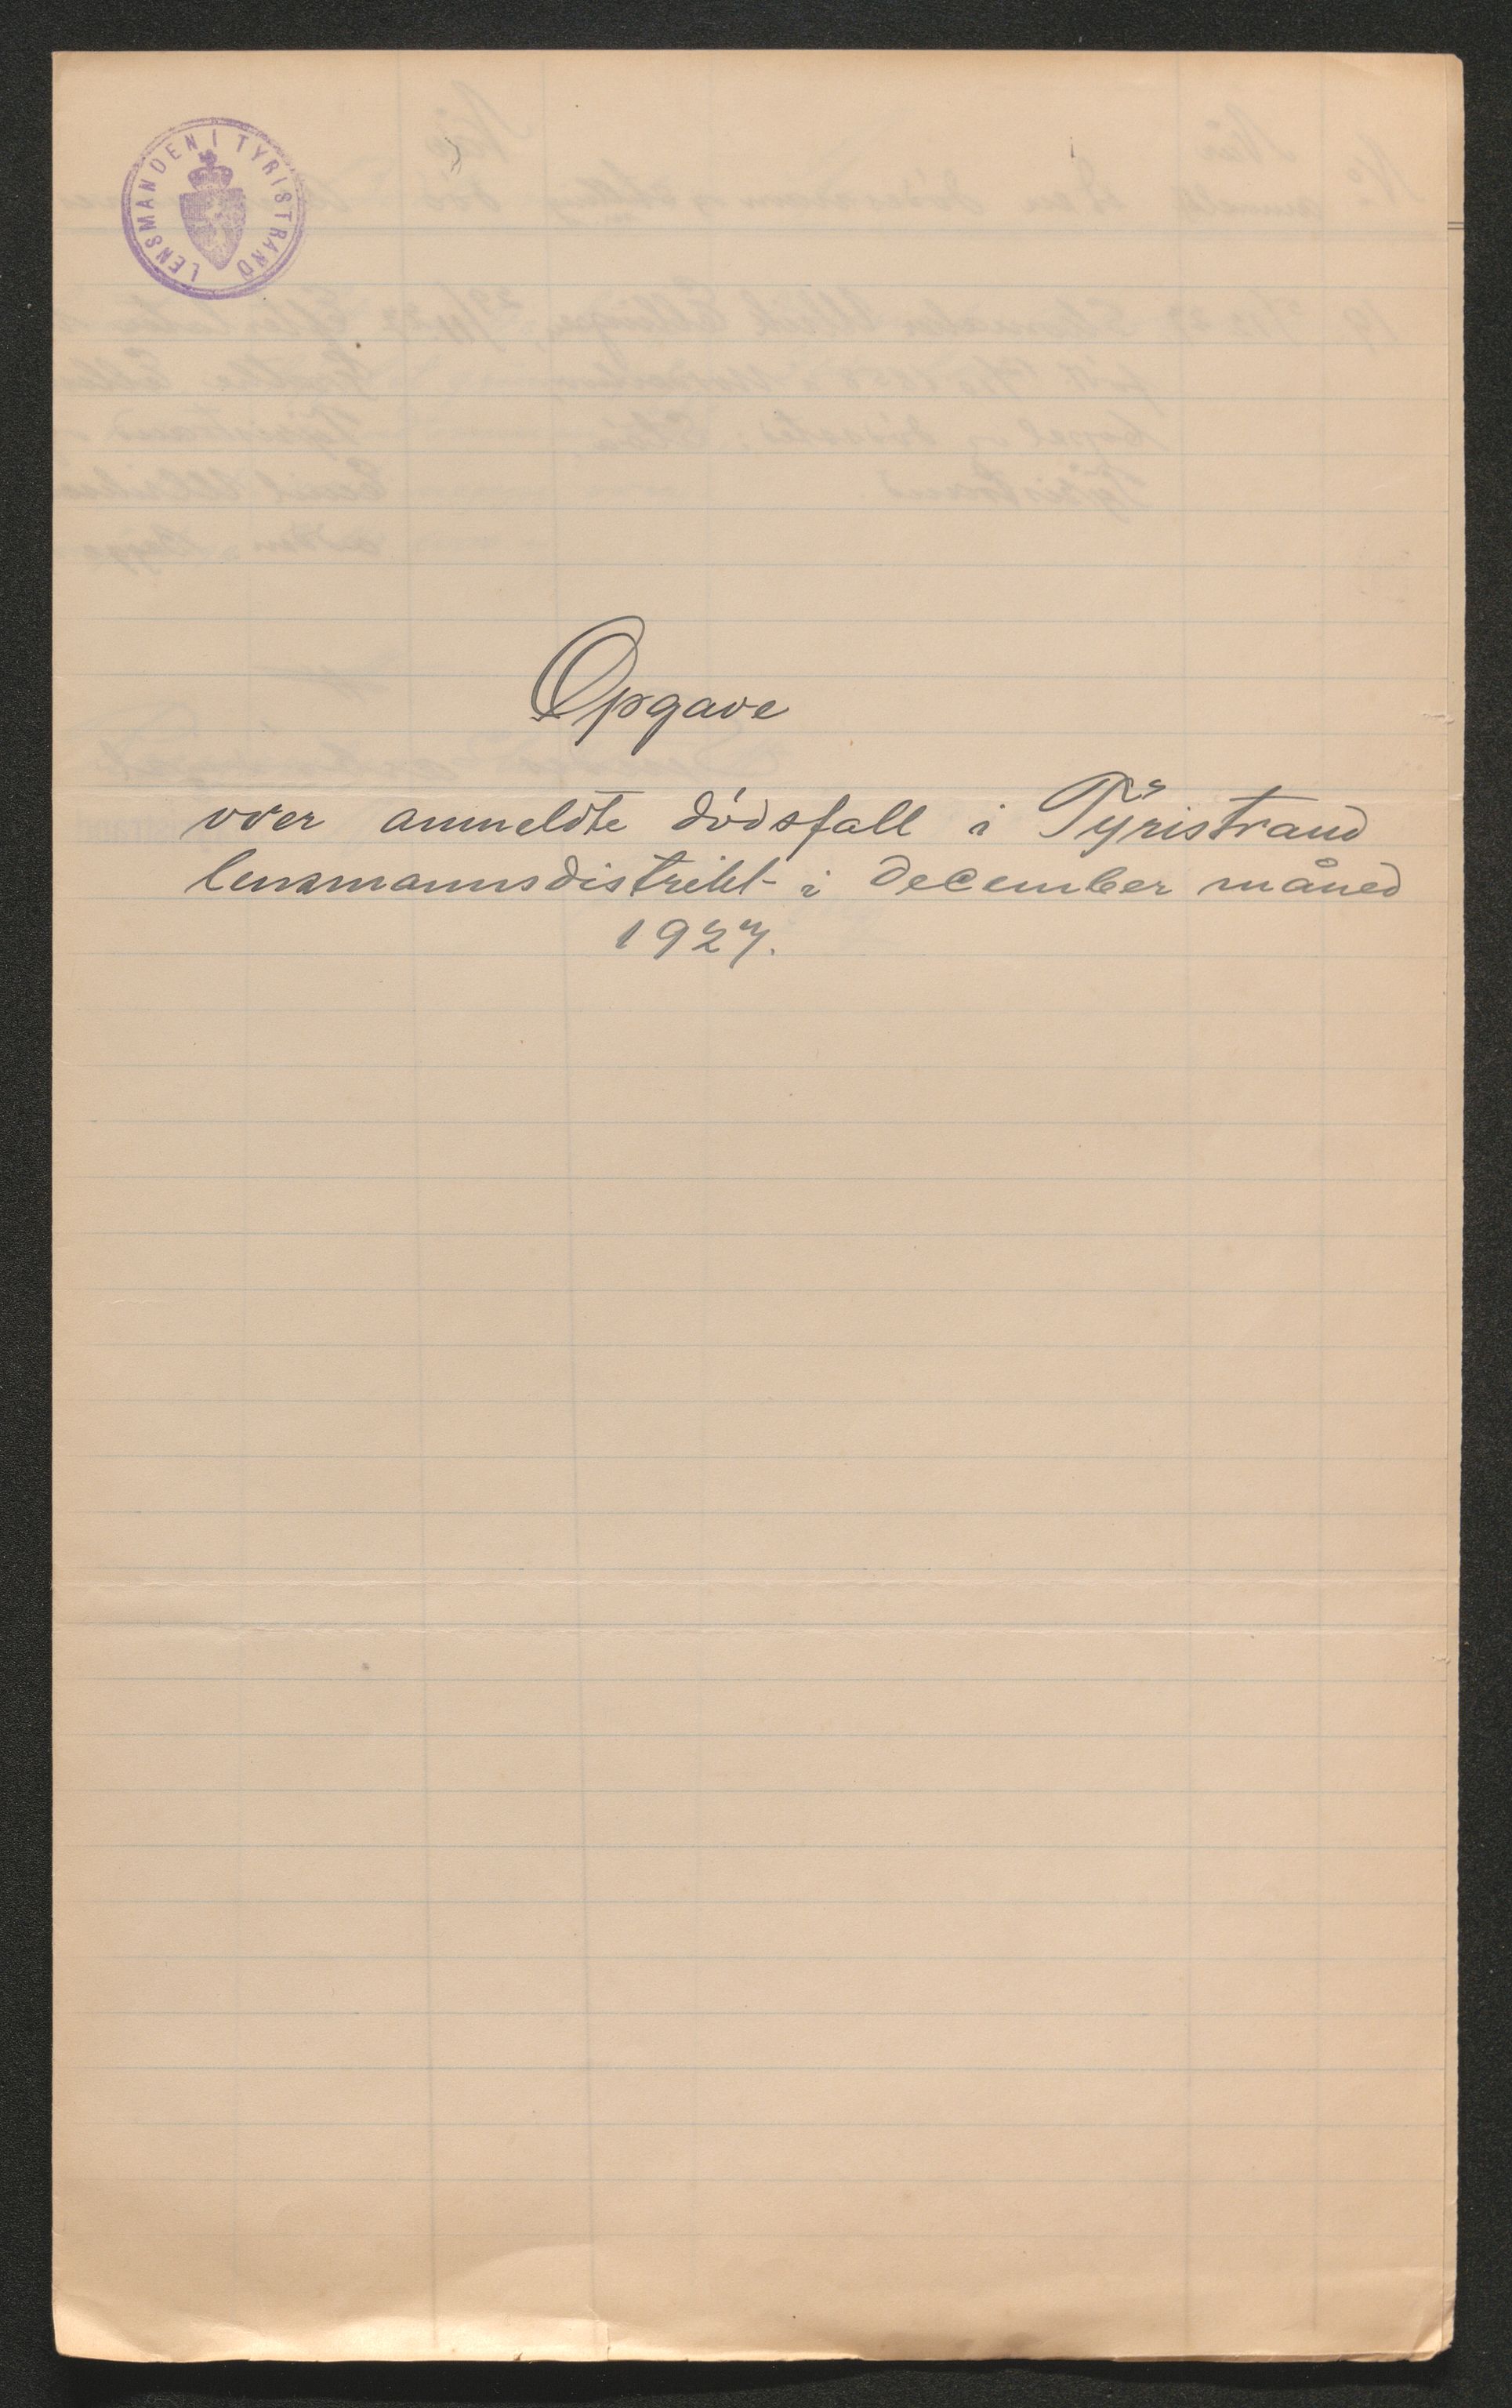 LENSMANDEN I TYRISTRAND
Opgave
over anmeldte dødsfall i Tyristrand
lensmannsdistrikt i december måned
1927.